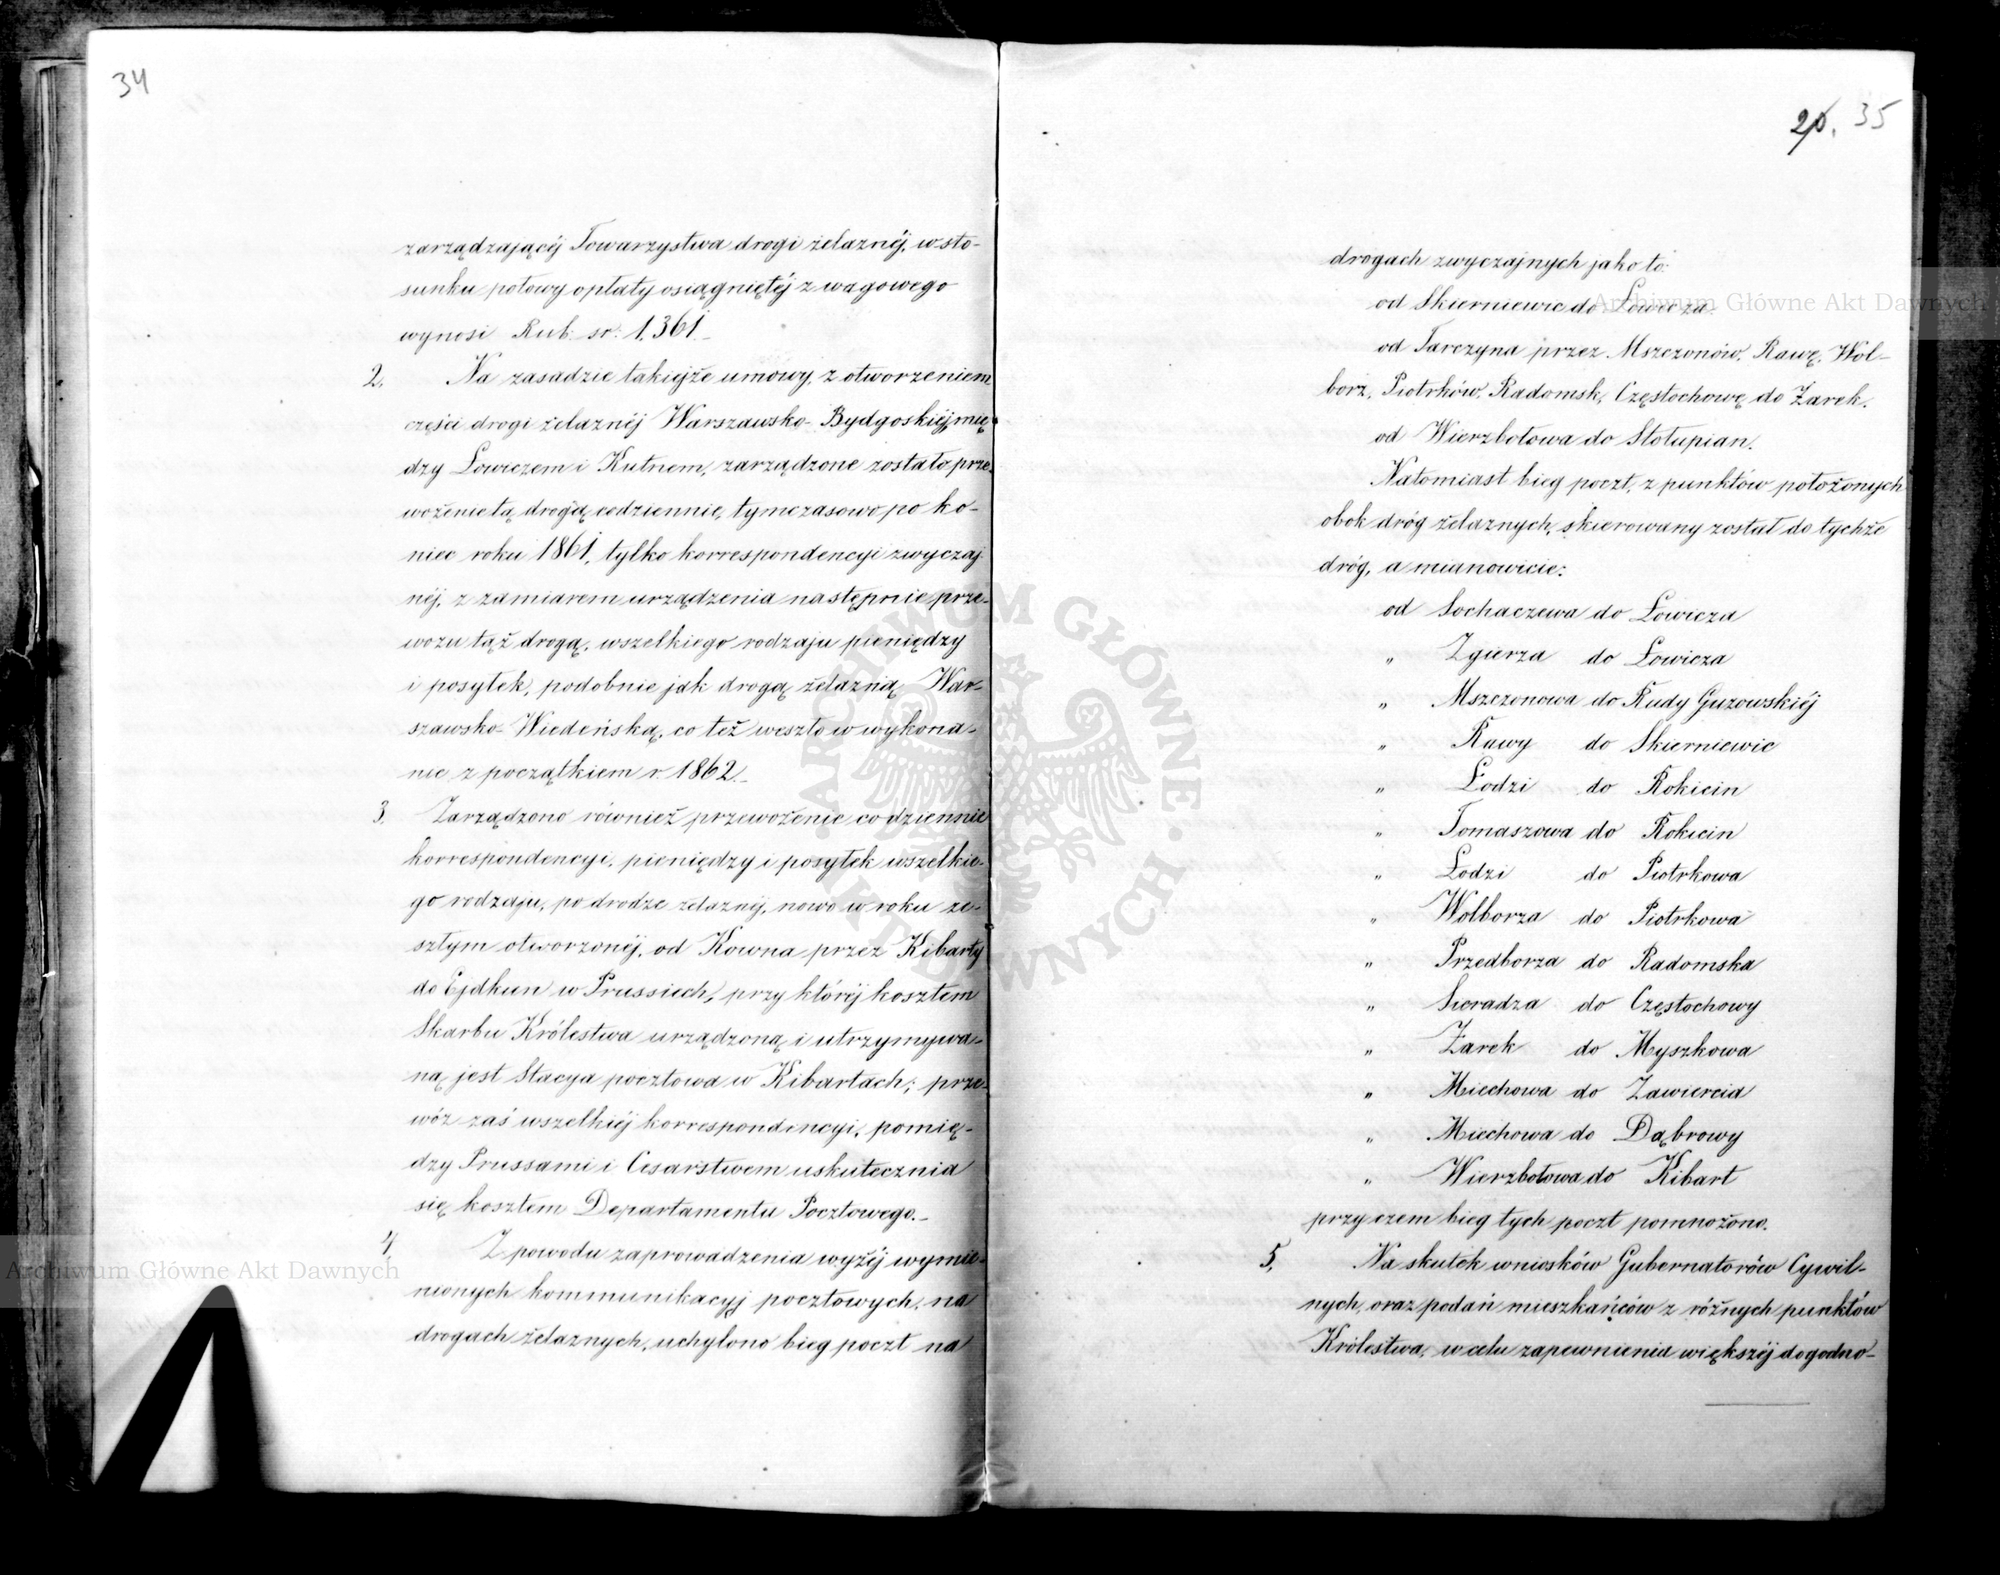 34
zarządzającéj Towarzystwa drogi żelaznéj, w sto-
sunku połowy opłaty osiągniętéj z wagowego
wynosi Rub. sr: 1,361.
2. Na zasadzie takiejże umowy, z otworzeniem
części drogi żelaznéj Warszawsko-Bydgoskiéj, mię-
dzy Łowiczem i Kutnem, zarządzone zostało prze-
wożenie tą drogą codziennie, tymczasowo po ko-
niec roku 1861, tylko korrespondencyi zwyczaj
néj, z zamiarem urządzenia następnie prze-
wozu tąż drogą, wszelkiego rodzaju pieniędzy
i posyłek, podobnie jak drogą żelazną War-
szawsko-Wiedeńską, co też weszło w wykona-
nie z początkiem r. 1862.
3. Zarządzono również przewożenie codziennie
korrespondencyi, pieniędzy i posyłek wszelkie-
go rodzaju, po drodze żelaznéj, nowo w roku ze-
szłym otworzonéj, od Kowna przez Kibarty
do Ejdkun w Prussiech, przy któréj kosztem
Skarbu Królestwa urządzoną i utrzymywa-
ną jest Stacya pocztowa w Kibartach; prze-
wóz zaś wszelkiéj korrespondencyi, pomię-
dzy Prussami i Cesarstwem uskutecznia
się kosztem Departamentu Pocztowego.
4. Z powodu zaprowadzenia wyżéj wymie-
nionych kommunikacyj pocztowych, na
drogach żelaznych, uchylono bieg poczt na
35
drogach zwyczajnych jako to:
od Skierniewic do Łowicza.
od Tarczyna przez Mszczonów, Rawę, Wol-
borz, Piotrków, Radomsk, Częstochowę do Żarek.
od Wierzbołowa do Stołupian.
Natomiast bieg poczt, z punktów położonych
obok dróg żelaznych, skierowany został do tychże
dróg, a mianowicie:
od Sochaczewa do Łowicza
„ Zgierza do Łowicza
„ Mszczonowa do Rudy Guzowskiéj
„ Rawy do Skierniewic
„ Łodzi do Rokicin
„ Tomaszowa do Rokicin
„ Łodzi do Piotrkowa
„ Wolborza do Piotrkowa
„ Przedborza do Radomska
„ Sieradza do Częstochowy
„ Żarek do Myszkowa
„ Miechowa do Zawiercia
„ Miechowa do Dąbrowy
„ Wierzbołowa do Kibart
przy czem bieg tych poczt pomnożono.
5. Na skutek wniosków Gubernatorów Cywil-
nych, oraz podań mieszkańców z różnych punktów
Królestwa, w celu zapewnienia większéj dogodno-
Archiwum Główne Akt Dawnych
Archiwum Główne Akt Dawnych
ARCHIWUM GŁÓWNE AKT DAWNYCH